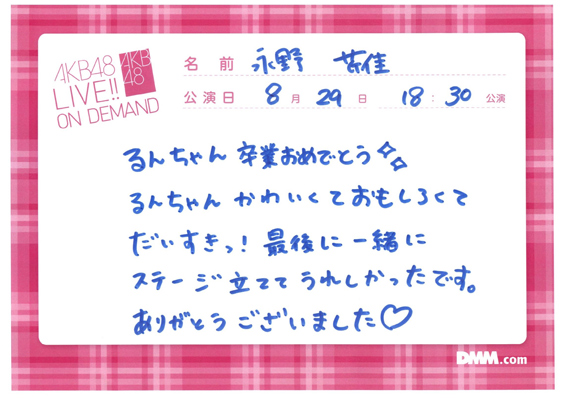 AKB48
LIVE!!
ON DEMAND
AKB
48
名 前 永野 芹佳
公演日 8 月 29 日 18 : 30 公演
るんちゃん 卒業おめでとう
るんちゃん かわいくて おもしろくて
だいすきっ! 最後に 一緒に
ステージ 立てて うれしかったです。
ありがとう ございました♡
DMM.com